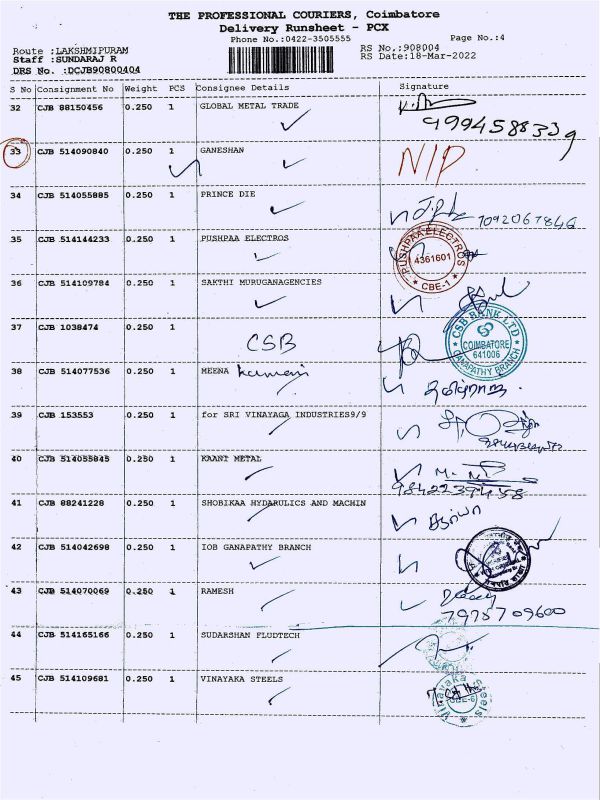 THE PROFESSIONAL COURIERS, Coimbatore
Delivery Runsheet - PCX
Phone No.:0422-3505555
Page No.:4
Route :LAKSHMIPURAM
RS No,:908004
Staff :SUNDARAJ R
RS Date:18-Mar-2022
DRS No. :DCJB90800404
S No Consignment No Weight PCS Consignee Details Signature
32 CJB 88150456 0.250 1 GLOBAL METAL TRADE
9994588339
33 CJB 514090840 0.250 1 GANESHAN NIP
34 CJB 514055885 0.250 1 PRINCE DIE
7092067846
35 CJB 514144233 0.250 1 PUSHPAA ELECTROS
PUSHPAA ELECTROS
4361601
CBE-1
36 CJB 514109784 0.250 1 SAKTHI MURUGANAGENCIES
37 CJB 1038474 0.250 1
CSB
CSB BANK LTD
COIMBATORE
641006
GANAPATHY BRANCH
38 CJB 514077536 0.250 1 MEENA
39 CJB 153553 0.250 1 for SRI VINAYAGA INDUSTRIES9/9
40 CJB 514055845 0.250 1 KAANT METAL
41 CJB 88241228 0.250 1 SHOBIKAA HYDARULICS AND MACHIN
42 CJB 514042698 0.250 1 IOB GANAPATHY BRANCH
43 CJB 514070069 0.250 1 RAMESH
44 CJB 514165166 0.250 1 SUDARSHAN FLUDTECH
45 CJB 514109681 0.250 1 VINAYAKA STEELS
Vinayaka Steels
CBE-6